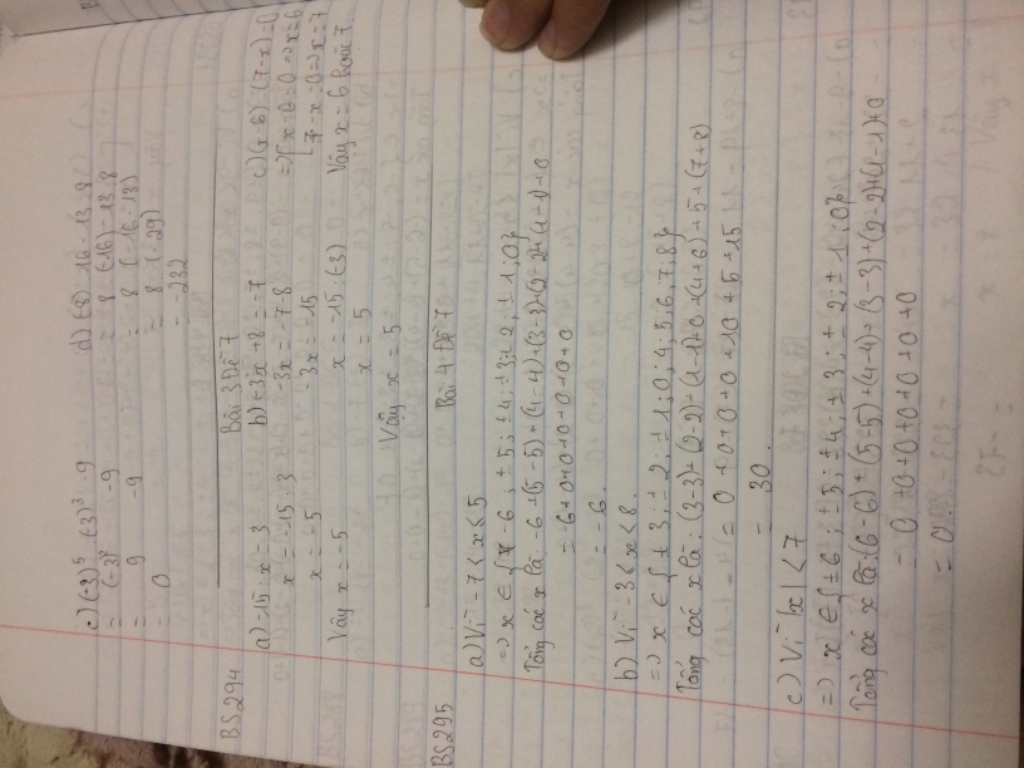 c) (-3)⁵ : (-3)³ - 9
= (-3)² - 9
= 9 - 9
= 0
d) (-8) . 16 - 13 . 8
= 8 . (-16) - 13 . 8
= 8 . (-16 - 13)
= 8 . (-29)
= -232
BS294
Bài 3 Đề 7
a) -15 : x = 3
x = -15 : 3
x = -5
Vậy x = -5
b) -3x + 8 = -7
-3x = -7 - 8
-3x = -15
x = -15 : (-3)
x = 5
Vậy x = 5
c) (x - 6) . (7 - x) = 0
=> [ x - 6 = 0 => x = 6
[ 7 - x = 0 => x = 7
Vậy x = 6 hoặc 7.
BS295
Bài 4 Đề 7
a) Vì -7 < x ≤ 5
=> x ∈ { -6 ; ±5 ; ±4 ; ±3 ; ±2 ; ±1 ; 0}
Tổng các x là: -6 + (5 - 5) + (4 - 4) + (3 - 3) + (2 - 2) + (1 - 1) + 0
= -6 + 0 + 0 + 0 + 0 + 0 + 0
= -6.
b) Vì -3 ≤ x ≤ 8.
=> x ∈ {±3 ; ±2 ; ±1 ; 0 ; 4 ; 5 ; 6 ; 7 ; 8}
Tổng các x là: (3 - 3) + (2 - 2) + (1 - 1) + 0 + (4 + 6) + 5 + (7 + 8)
= 0 + 0 + 0 + 0 + 10 + 5 + 15
= 30.
c) Vì |x| < 7
=> x ∈ {±6 ; ±5 ; ±4 ; ±3 ; ±2 ; ±1 ; 0}
Tổng các x là: (6 - 6) + (5 - 5) + (4 - 4) + (3 - 3) + (2 - 2) + (1 - 1) + 0
= 0 + 0 + 0 + 0 + 0 + 0
= 0